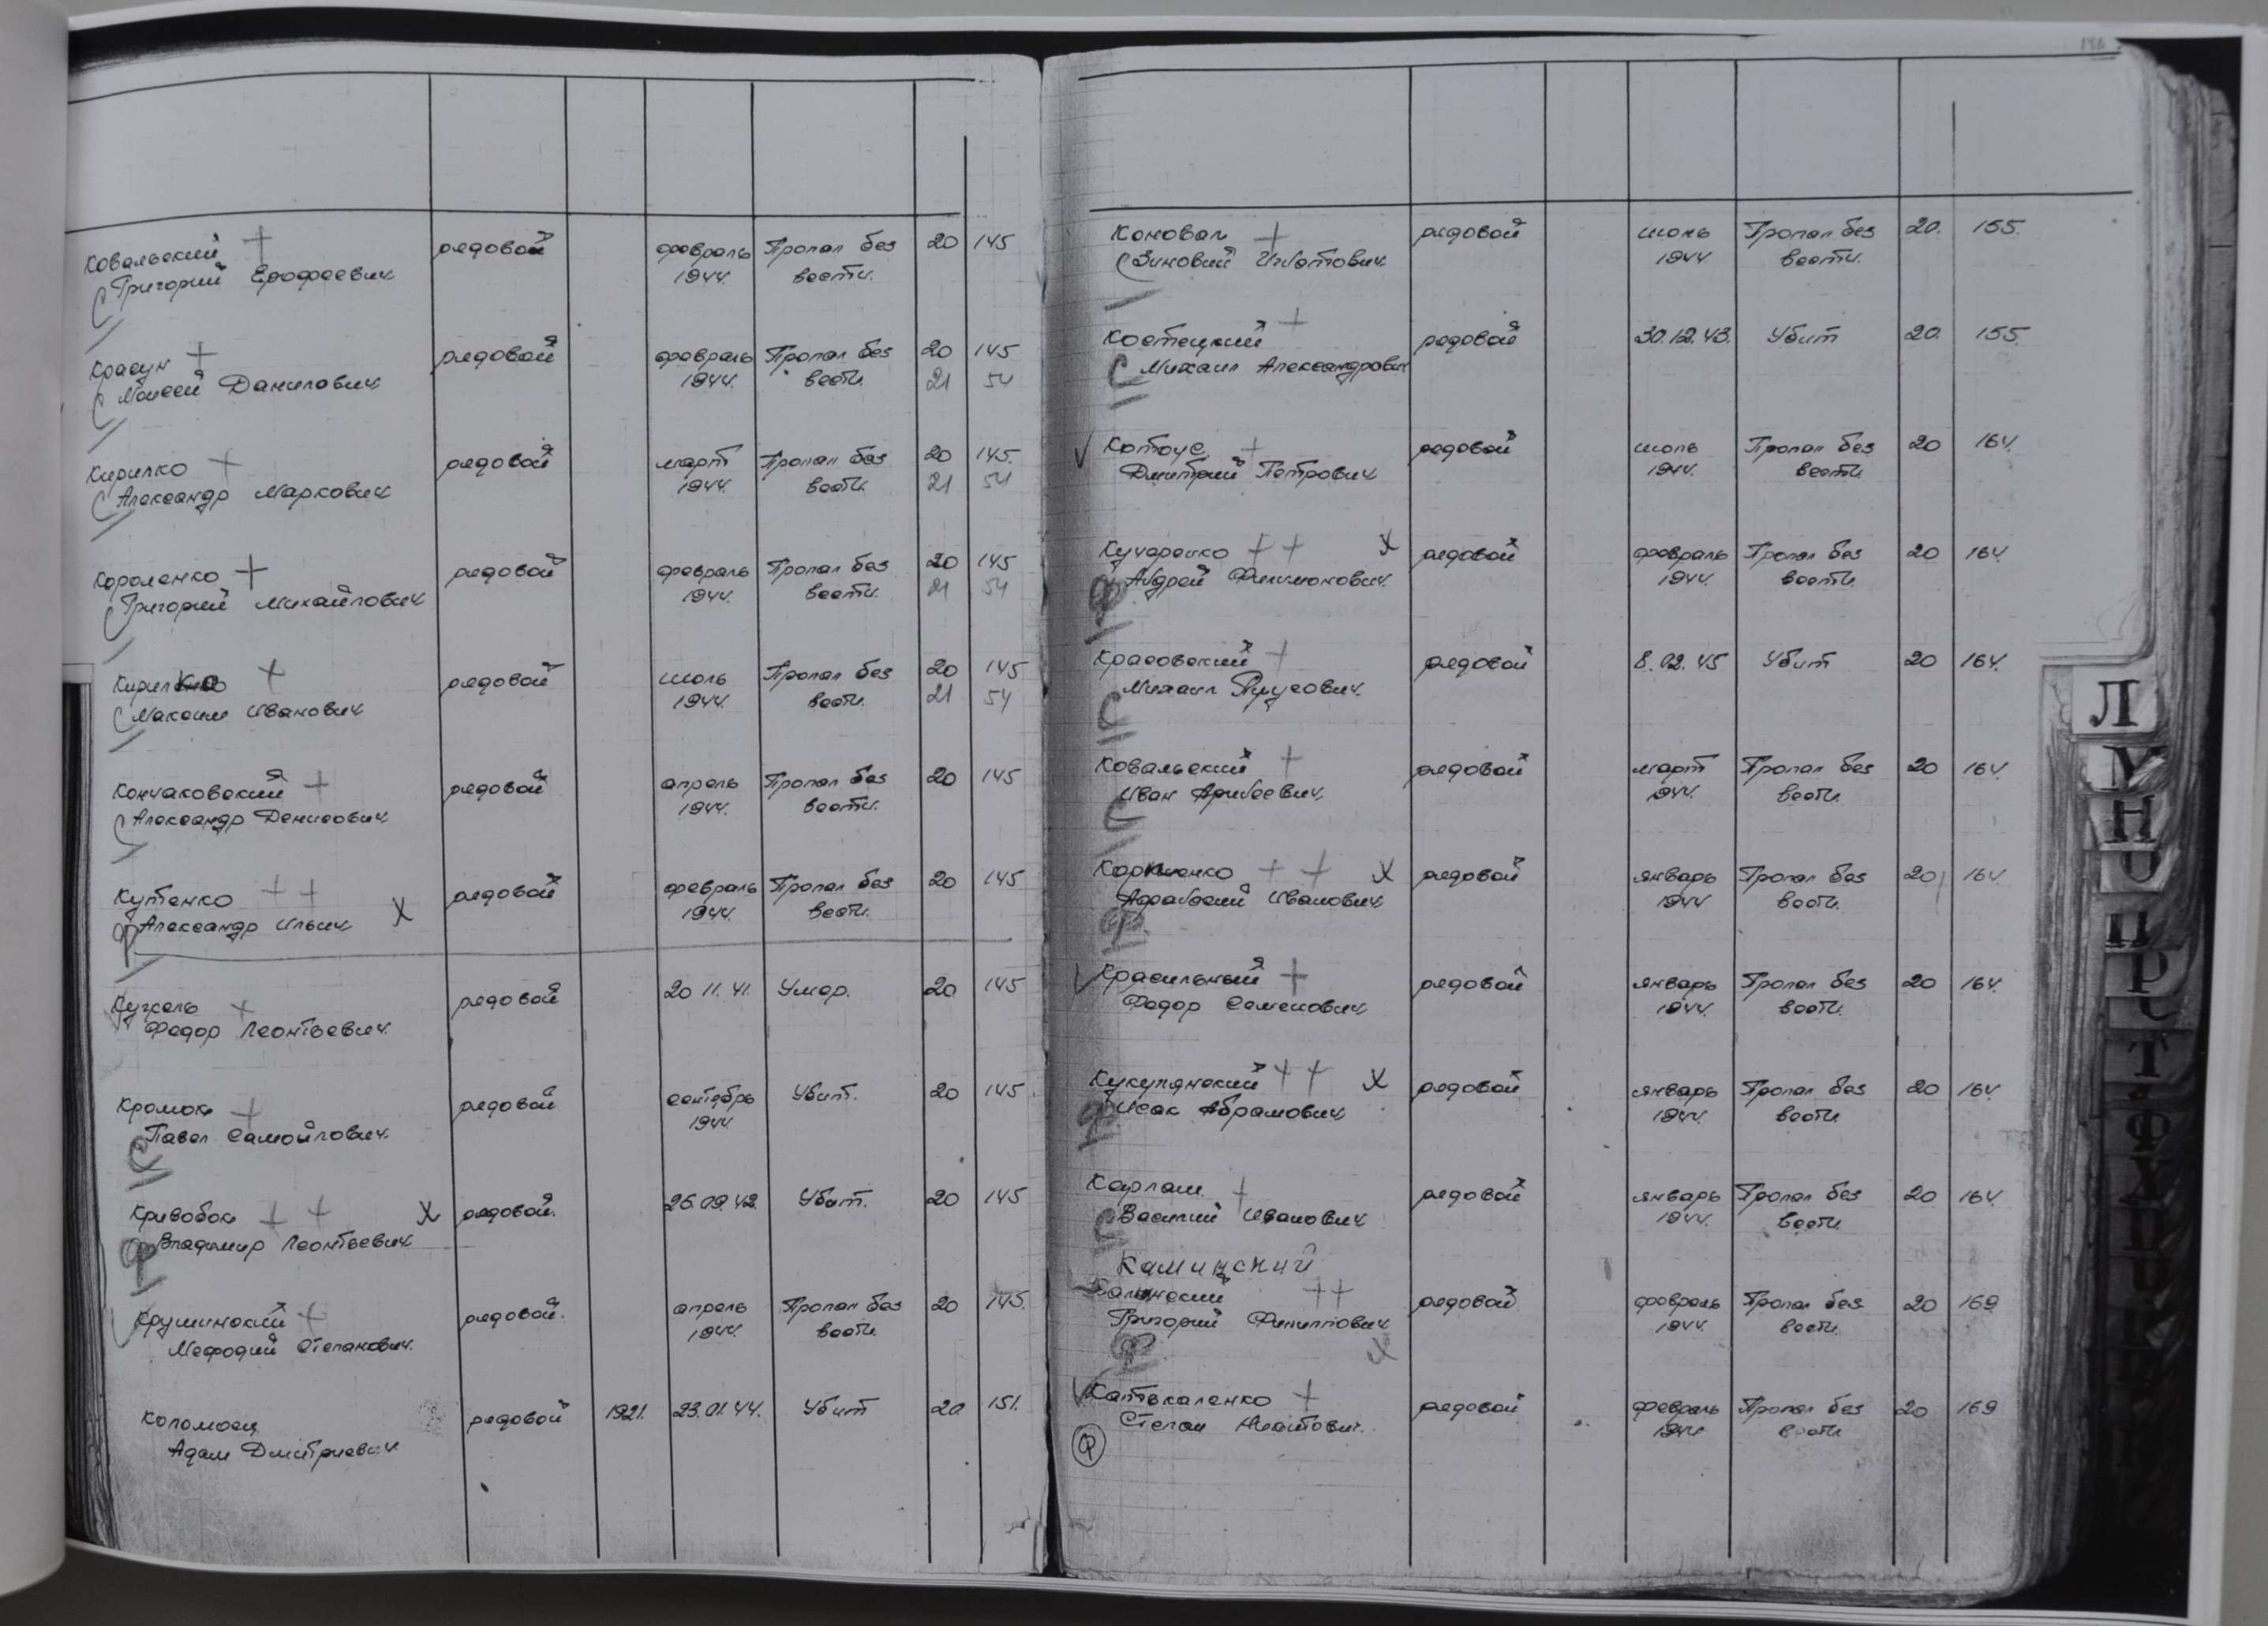 Ковальский + рядовой февраль Пропал без 20 145
Григорий Ерофеевич 1944. вести.
Красун + рядовой февраль Пропал без 20 145
Моисей Данилович 1944. вести. 21 54
Кирилко + рядовой март Пропал без 20 145.
Александр Маркович 1944. вести. 21 54
Короленко + рядовой февраль Пропал без 20 145
Григорий Михайлович 1944. вести. 21 54
Кирилко + рядовой июль Пропал без 20 145
Максим Иванович 1944. вести. 21 54
Кончаковский + рядовой апрель Пропал без 20 145
Александр Денисович 1944. вести.
Кутенко + + рядовой февраль Пропал без 20 145
Ф Александр Ильич X 1944. вести.
+ рядовой 20 11. 41. Умер. 20 145
Федор Леонтьевич.
Кромок + рядовой сентябрь Убит. 20 145
Павел Самойлович. 1944
С
Кривобок + + X рядовой. 26.09.42. Убит. 20 145
Владимир Леонтьевич
Ф
Крушинский + рядовой. апрель Пропал без 20 145.
Мефодий Степанович. 1944. вести.
Коломоец рядовой 1921. 23.01.44. Убит 20 151.
Адам Дмитриевич
Коновал + рядовой июль Пропал без 20. 155.
Зиновий 1944 вести.
Костецкий + рядовой 30.12.43. Убит 20. 155.
С Михаил Александрович
Котоус + рядовой июль Пропал без 20 164.
Дмитрий Петрович 1944. вести.
Кучеренко + + X рядовой февраль Пропал без 20 164.
Андрей Филимонович. 1944. вести.
Ф
Красовский + рядовой 8.02.45 Убит 20 164.
Михаил
С
Ковальский + рядовой март Пропал без 20 164.
Иван 1944. вести.
С
Корниенко + + X рядовой январь Пропал без 20 164
Иванович 1944 вести.
Ф
Красильный + рядовой январь Пропал без 20 164.
Федор Семенович 1944. вести.
Кукулянский + + X рядовой январь Пропал без 20 164
Исак Абрамович 1944. вести.
Ф
Карлаш + рядовой январь Пропал без 20 164.
С Василий Иванович 1944. вести.
Каминский
++ рядовой февраль Пропал без 20 169
Григорий Филиппович 1944. вести.
Ф X
+ рядовой февраль Пропал без 20 169
Степан 1944 вести
Ф
Л
М
Н
О
П
Р
С
Т
У
Ф
Х